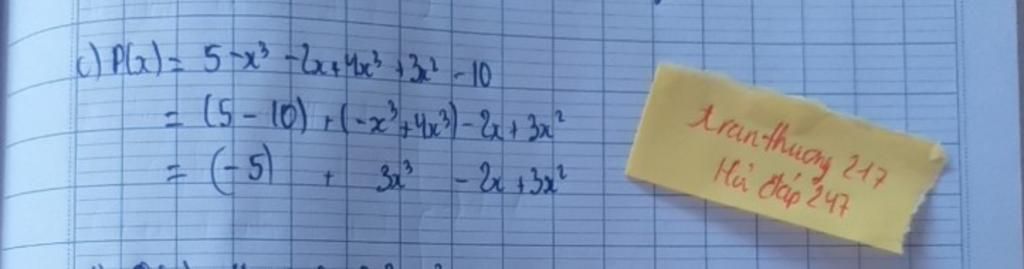 c) P(x) = 5 - x³ - 2x + 4x³ + 3x² - 10
= (5 - 10) + (-x³ + 4x³) - 2x + 3x²
= (-5) + 3x³ - 2x + 3x²
tran-thuong 217
Hỏi đáp 247